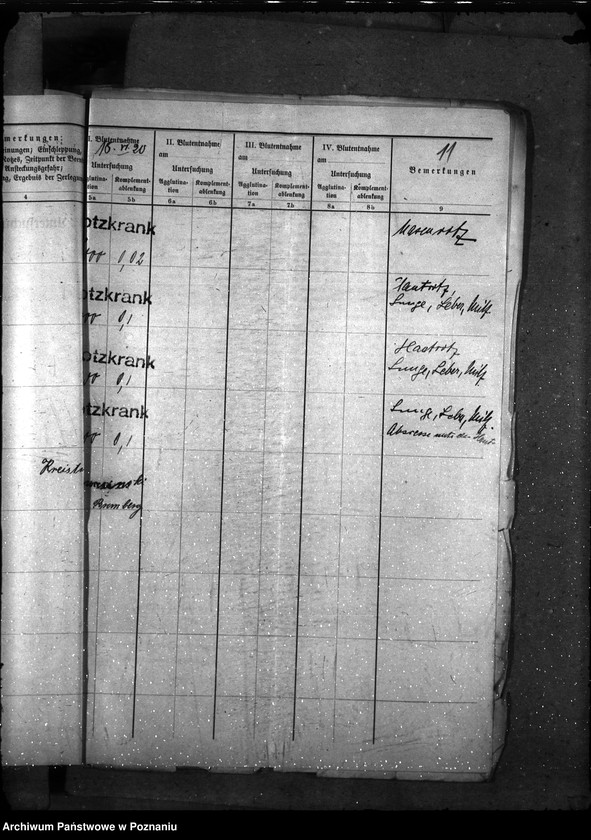 11
merkungen;
inungen; Einschleppung,
Rotzes, Zeitpunkt der
Ansteckungsgefahr;
g, Ergebnis der Zerlegung
4
I. Blutentnahme
am 16. 20
Untersuchung
glutina-
tion
Komplement-
ablenkung
5a 5b
II. Blutentnahme
am
Untersuchung
Agglutina-
tion
Komplement-
ablenkung
6a 6b
III. Blutentnahme
am
Untersuchung
Agglutina-
tion
Komplement-
ablenkung
7a 7b
IV. Blutentnahme
am
Untersuchung
Agglutina-
tion
Komplement-
ablenkung
8a 8b
Bemerkungen
9
otzkrank
0,02
Nasenrotz
otzkrank
0,1
Hautrotz,
Lunge, Leber, Milz
otzkrank
0,1
Hautrotz
Lunge, Leber, Milz
otzkrank
0,1
Lunge, Leber, Milz.
Abscesse unter der Haut
Kreist
Bromberg
Archiwum Państwowe w Poznaniu